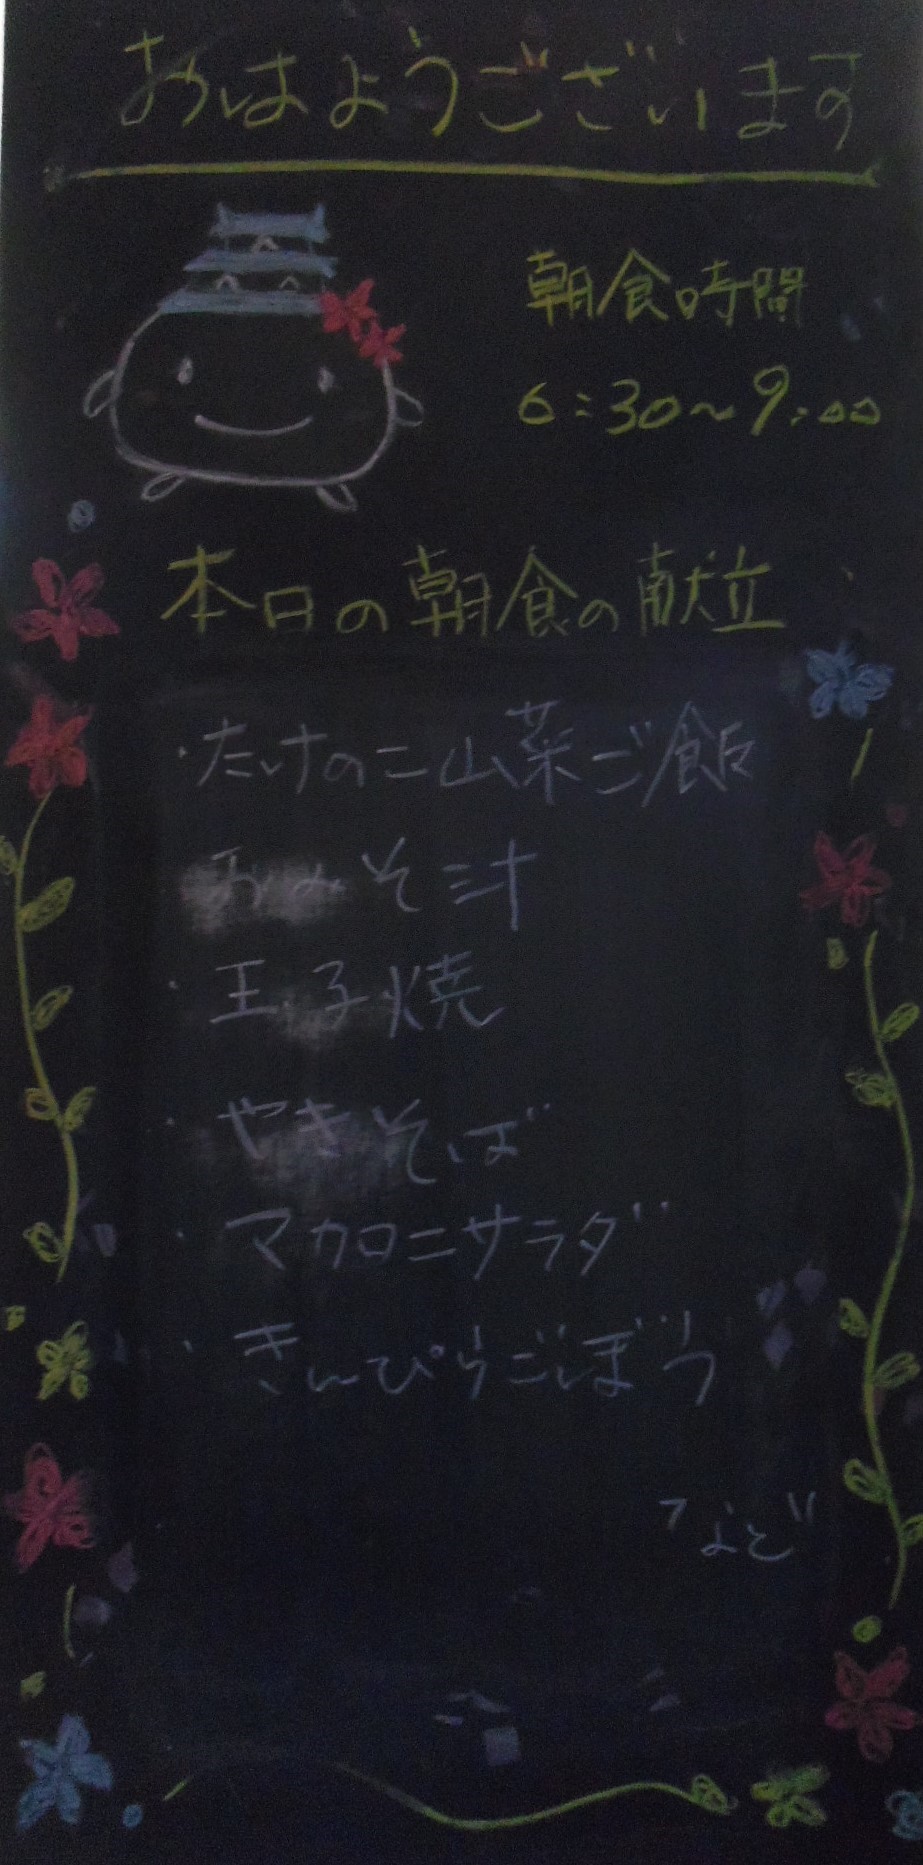 おはようございます
朝食時間
6:30~9:00
本日の朝食の献立
・たけのこ山菜ご飯
おみそ汁
・玉子焼
・やきそば
・マカロニサラダ
・きんぴらごぼう
など